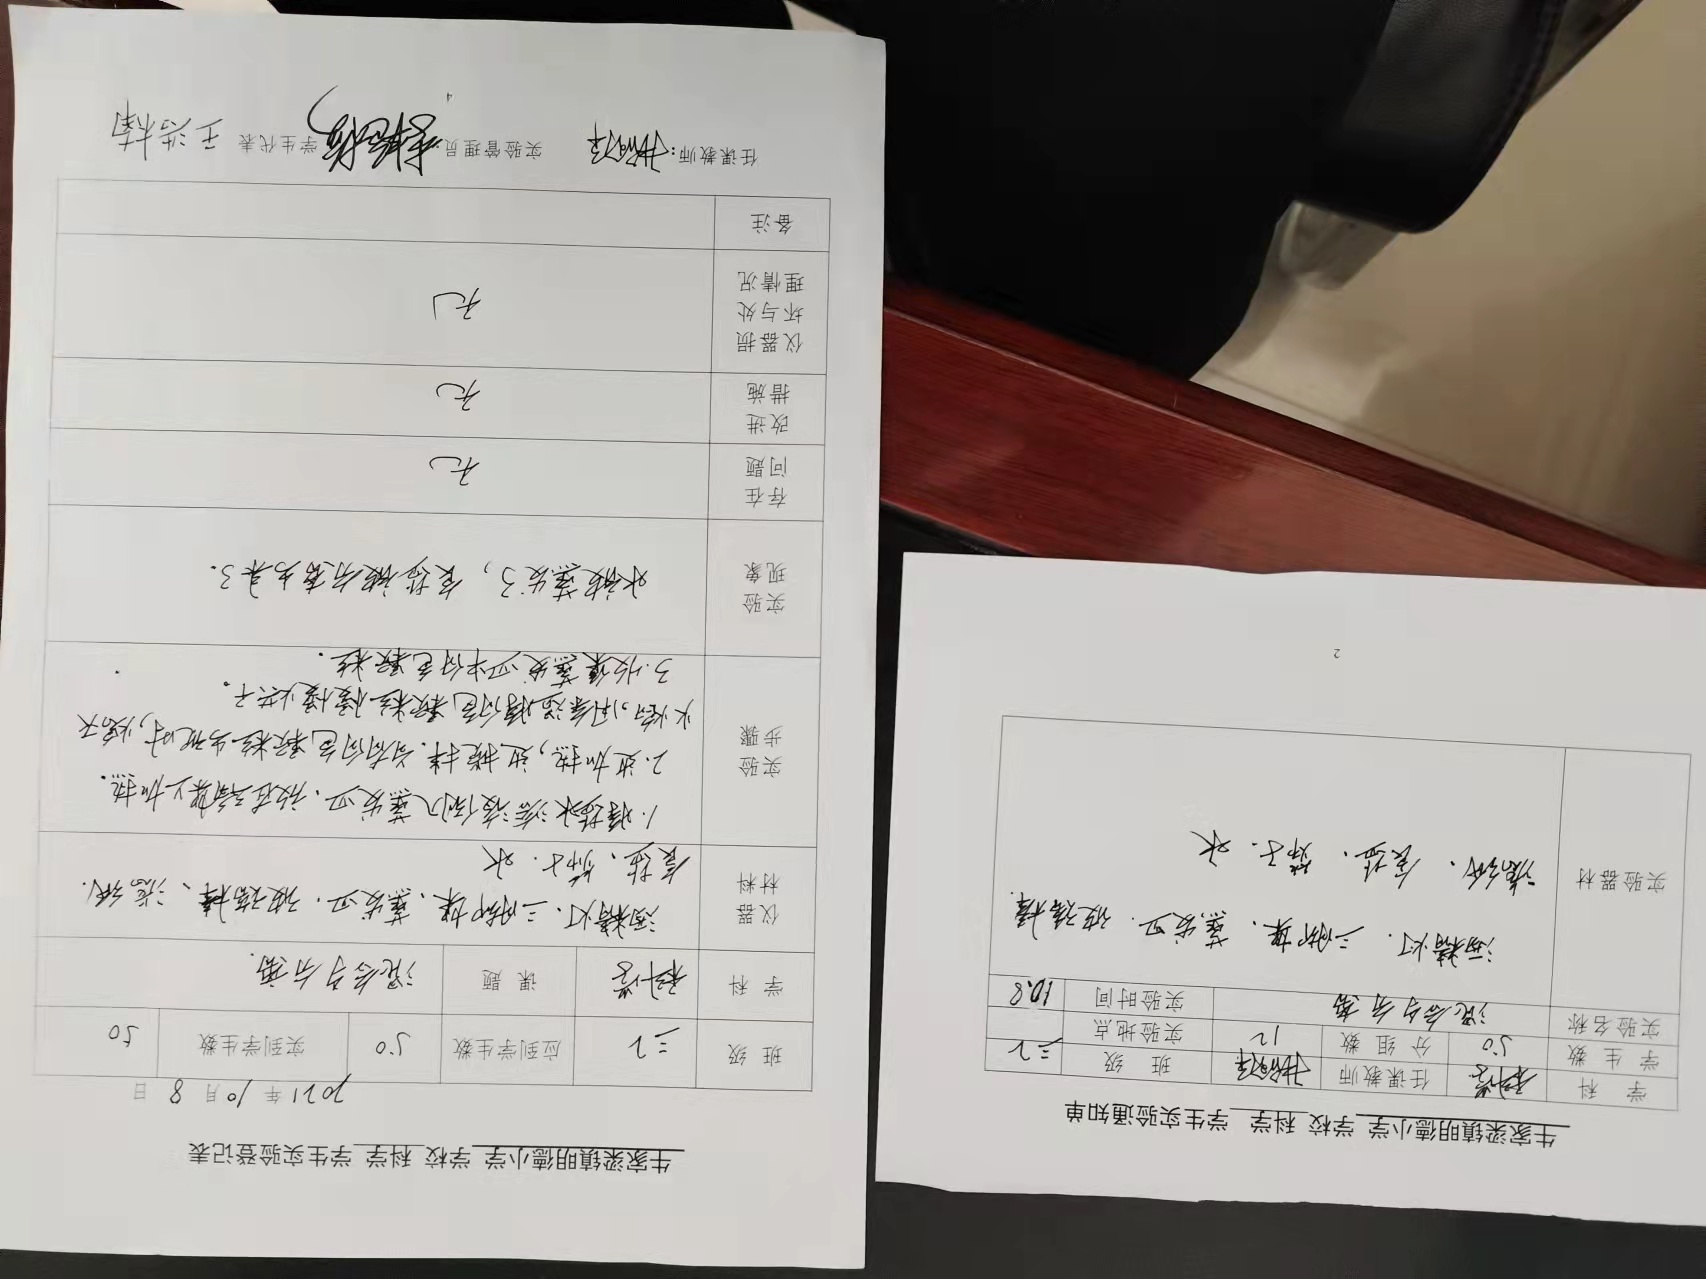 牛家梁镇明德小学 学校 科学 学生实验通知单
学 科 科学 任课教师 班 级 三2
学 生 数 50 分 组 数 12 实验地点
实验名称 混合与分离 实验时间 10.8
实验器材
酒精灯. 三脚架、蒸发皿. 玻璃棒.
滤纸、食盐、筛子. 水
2
牛家梁镇明德小学 学校 科学 学生实验登记表
2021 年 10 月 8 日
班 级 三2 应到学生数 50 实到学生数 50
学 科 科学 课 题 混合与分离.
仪器
材料
酒精灯. 三脚架、蒸发皿. 玻璃棒、滤纸.
食盐、筛子. 水
实验
步骤
1. 将盐水溶液倒入蒸发皿、放在三脚架上加热.
2. 边加热, 边搅拌. 当有白色颗粒出现时, 熄灭
火焰, 用余温将白色颗粒慢慢烘干。
3. 收集蒸发皿中白色颗粒.
实验
现象
水被蒸发了, 食盐被分离出来了.
存在
问题
无
改进
措施
无
仪器损
坏与处
理情况
无
备注
任课教师: 实验管理员: 学生代表 王浩楠
4